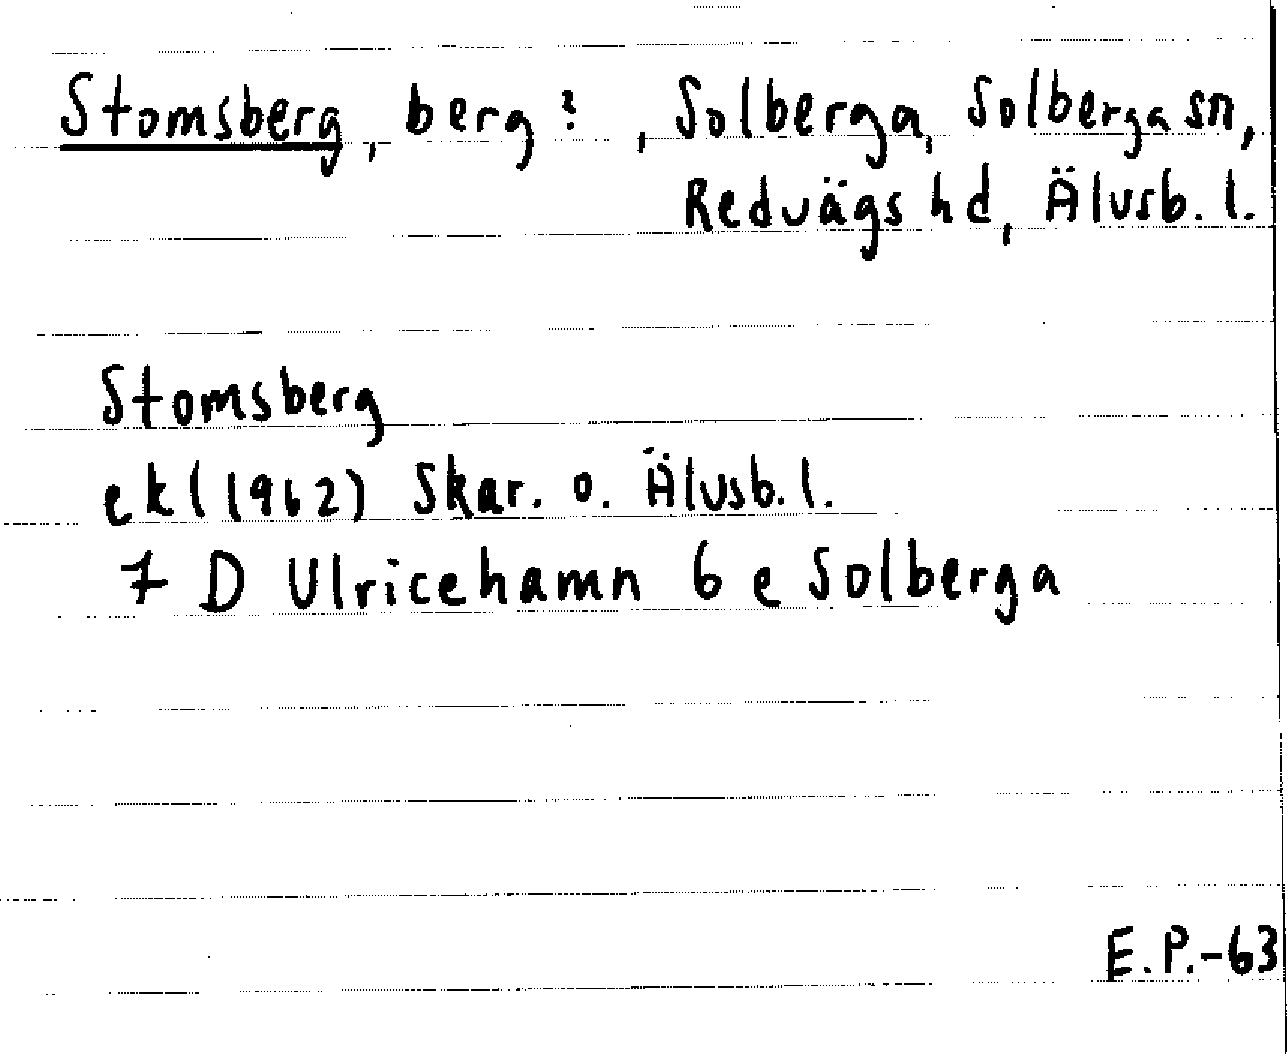 Stomsberg, berg?, Solberga, Solberga sn,
Redvägs hd, Älvsb. l.
Stomsberg
ek (1962) Skar. o. Älvsb. l.
7 D Ulricehamn 6 e Solberga
E.P.-63